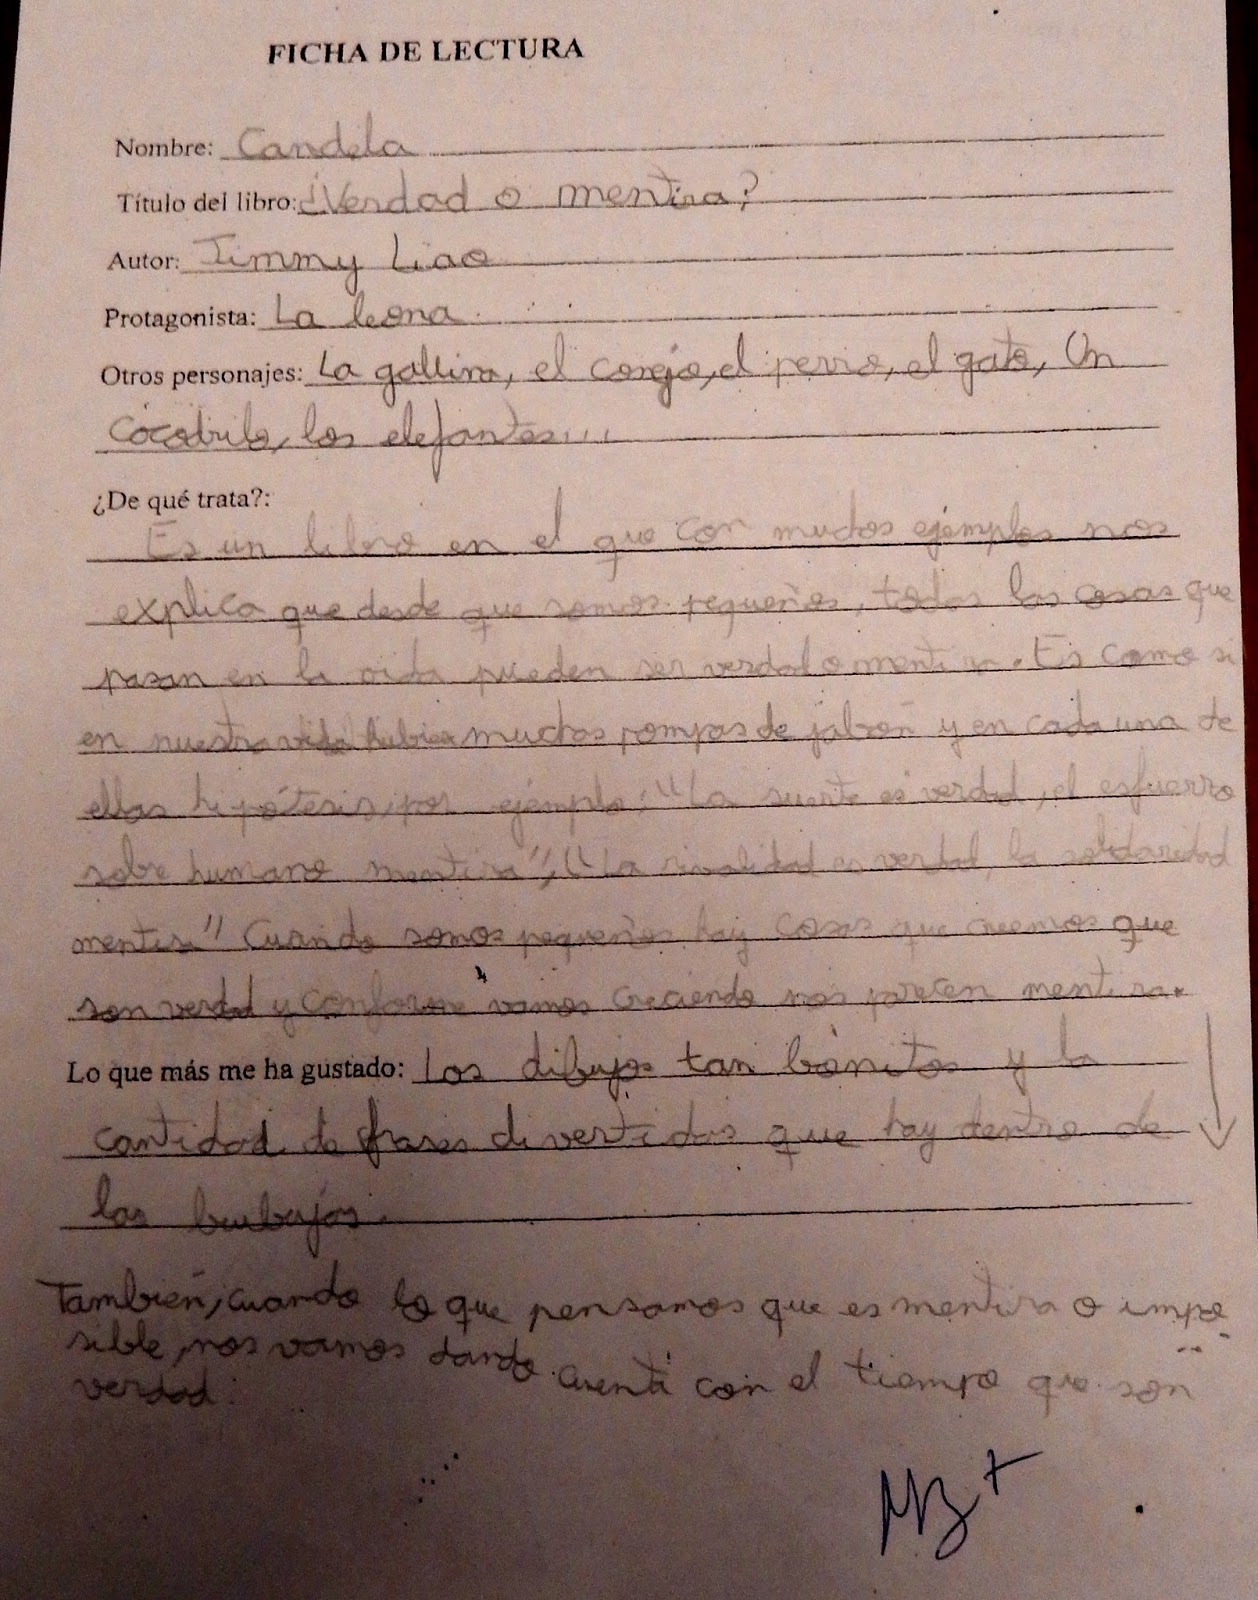 FICHA DE LECTURA
Nombre: Candela
Título del libro: ¿Verdad o mentira?
Autor: Jimmy Liao
Protagonista: La leona.
Otros personajes: La gallina, el conejo, el perro, el gato, Un
cocodrilo, los elefantes...
¿De qué trata?:
Es un libro en el que con muchos ejemplos nos
explica que desde que somos pequeños, todas las cosas que
pasan en la vida pueden ser verdad o mentira. Es como si
en nuestra vida hubiera muchas pompas de jabón y en cada una de
ellas hipótesis, por ejemplo: "La suerte es verdad, el esfuerzo
sobre humano mentira", "La rivalidad es verdad, la solidaridad
mentira" Cuando somos pequeños hay cosas que creemos que
son verdad y conforme vamos creciendo nos parecen mentira.
Lo que más me ha gustado: Los dibujos tan bonitos y la
cantidad de frases divertidas que hay dentro de
las burbujas.
También, cuando lo que pensamos que es mentira o impo
sible, nos vamos dando cuenta con el tiempo que son
verdad.
MB+